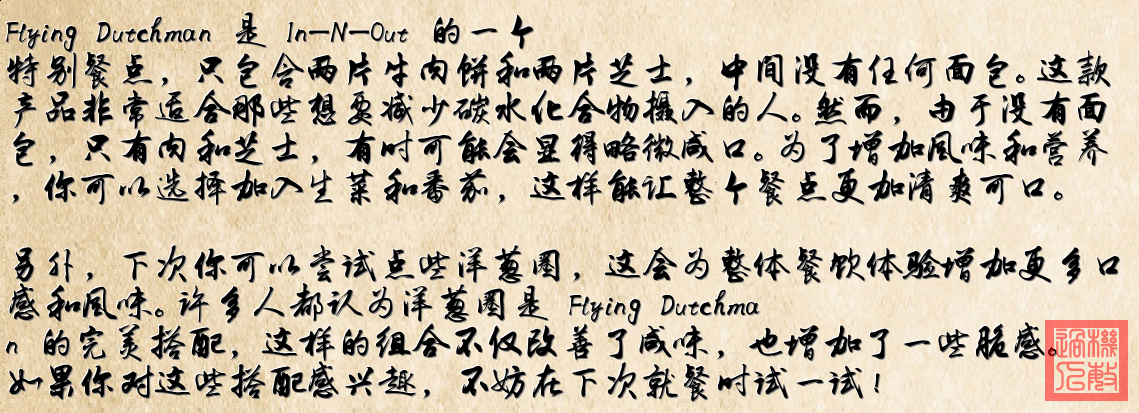 Flying Dutchman 是 In-N-Out 的一个
特别餐点，只包含两片牛肉饼和两片芝士，中间没有任何面包。这款
产品非常适合那些想要减少碳水化合物摄入的人。然而，由于没有面
包，只有肉和芝士，有时可能会显得略微咸口。为了增加风味和营养
，你可以选择加入生菜和番茄，这样能让整个餐点更加清爽可口。
另外，下次你可以尝试点些洋葱圈，这会为整体餐饮体验增加更多口
感和风味。许多人都认为洋葱圈是 Flying Dutchma
n 的完美搭配，这样的组合不仅改善了咸味，也增加了一些脆感。
如果你对这些搭配感兴趣，不妨在下次就餐时试一试！